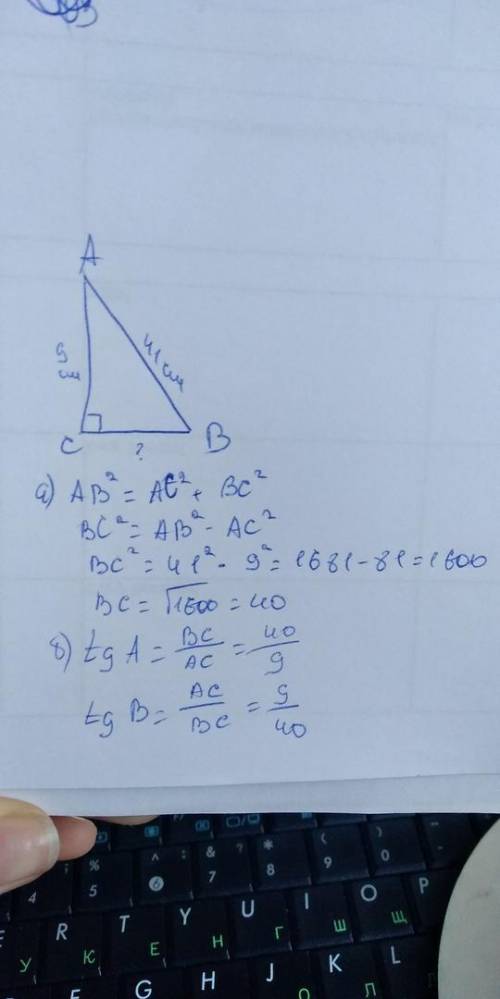 A
9 см
41 см
C
B
?
а) AB² = AC² + BC²
BC² = AB² - AC²
BC² = 41² - 9² = 1681 - 81 = 1600
BC = √1600 = 40
б) tg A = BC/AC = 40/9
tg B = AC/BC = 9/40
% ^ : & ? * ( ) -
4 5 6 7 8 9 0
R T Y U I O P
У К Е Н Г Ш Щ
F G H J K L
О Л